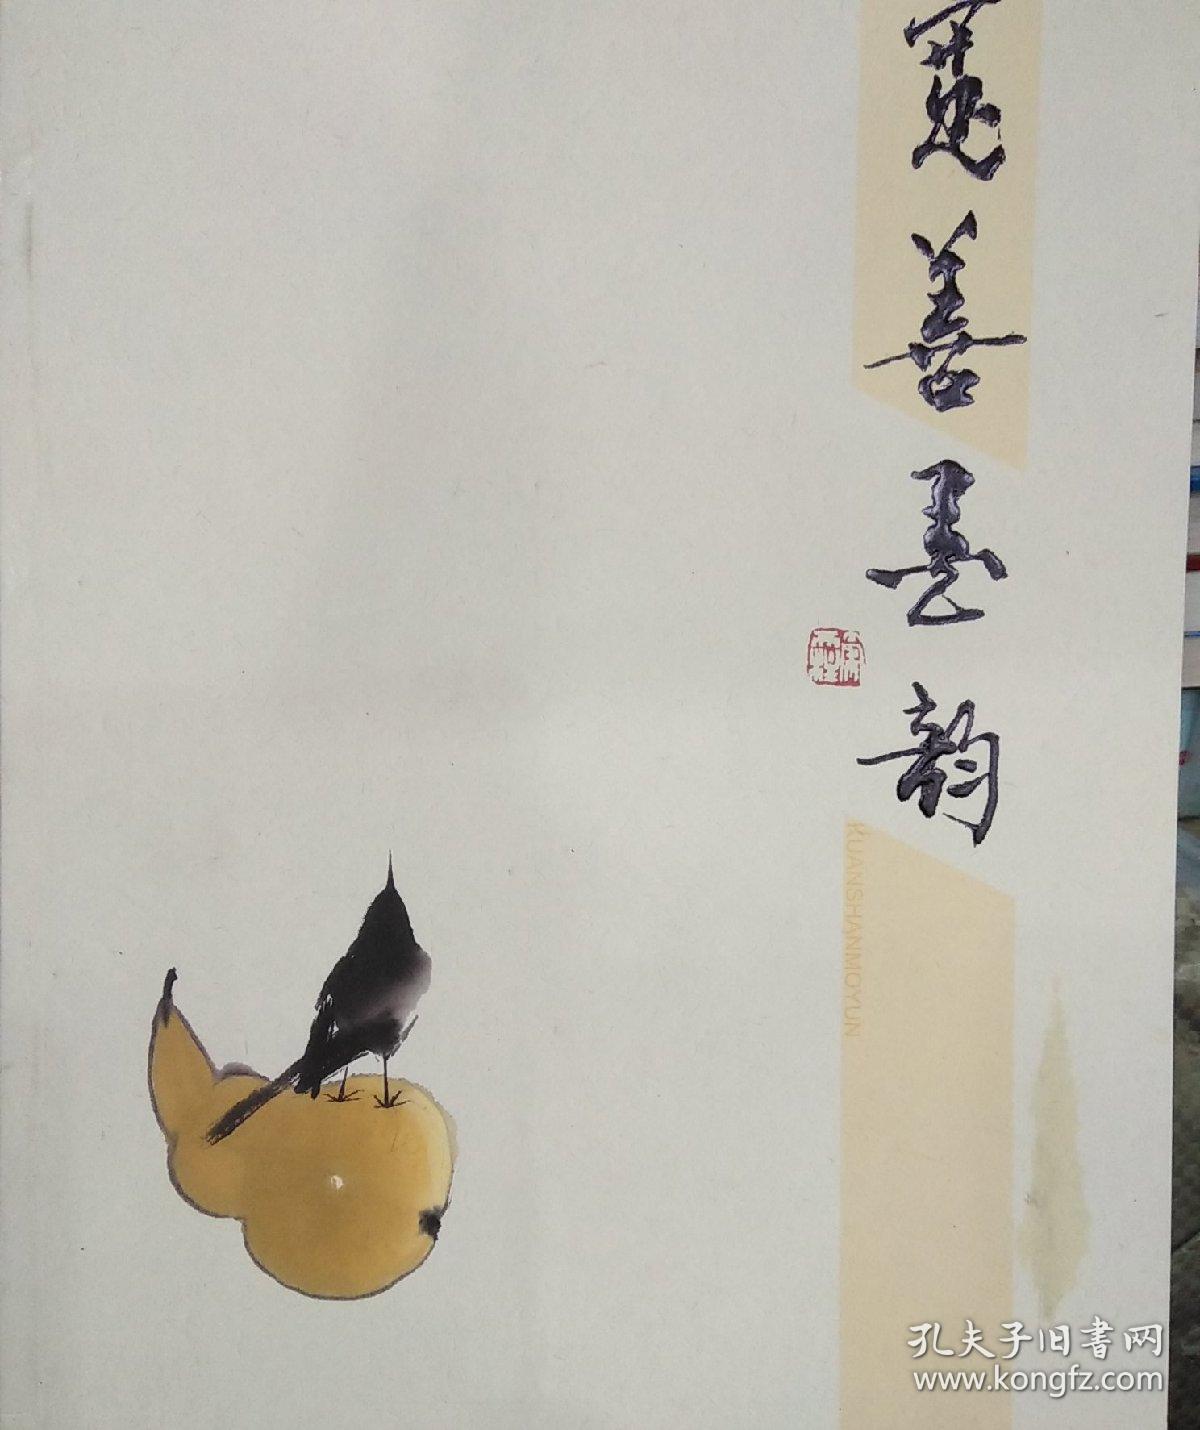 寬善墨韵
KUANSHANMOYUN
孔夫子旧書网
www.kongfz.com